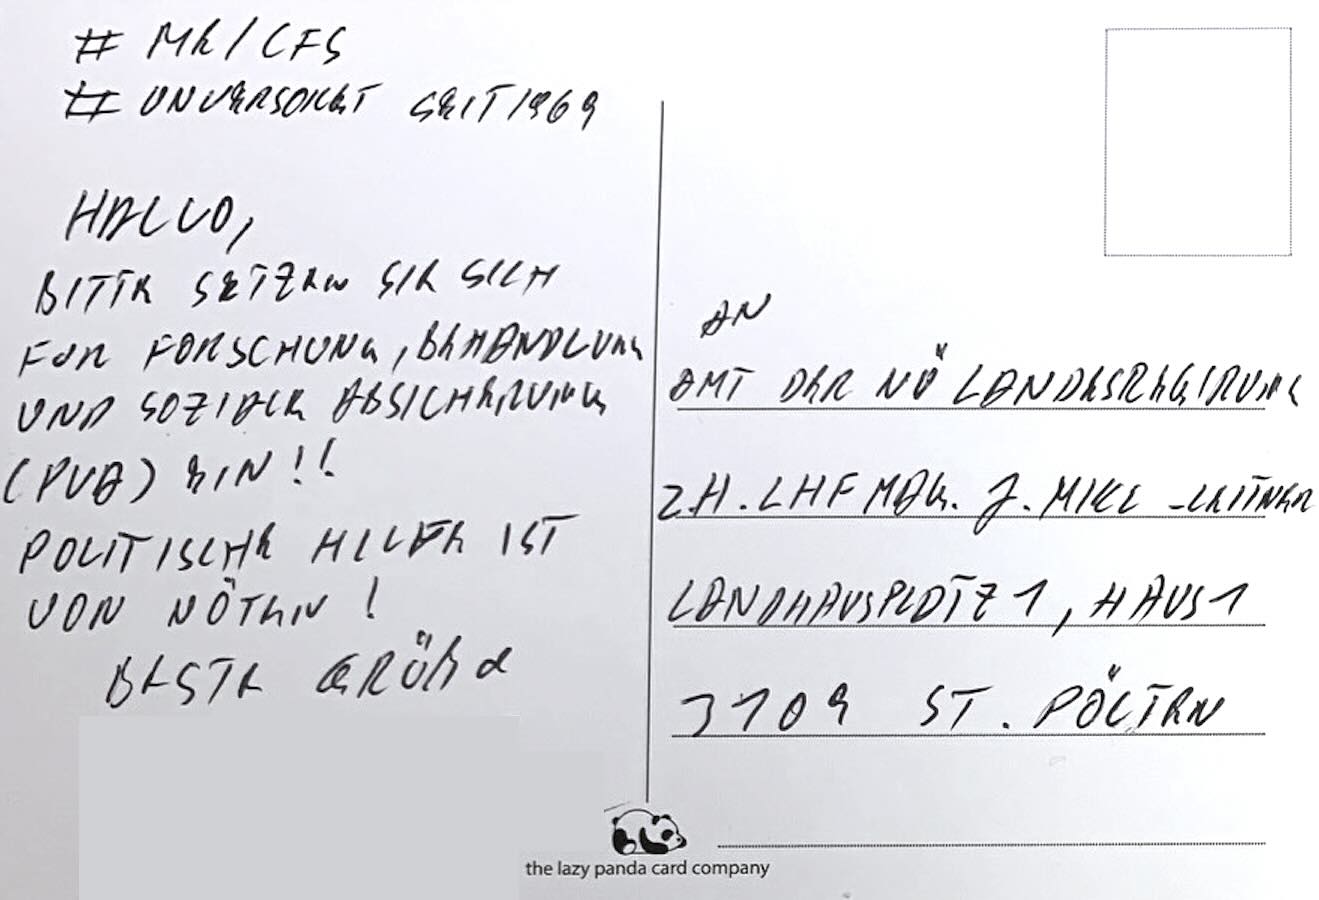 # ME/CFS
# UNVERSORGT SEIT 1969
HALLO,
BITTE SETZEN SIE SICH
FÜR FORSCHUNG, BEHANDLUNG
UND SOZIALE ABSICHERUNG
(PVA) EIN!!
POLITISCHE HILFE IST
VON NÖTEN!
BESTE GRÜßE
AN
AMT DER NÖ LANDESREGIRUNG
Z.H. LHF MAG. J. MIKL-LEITNER
LANDHAUSPLATZ 1, HAUS 1
3109 ST. PÖLTEN
the lazy panda card company